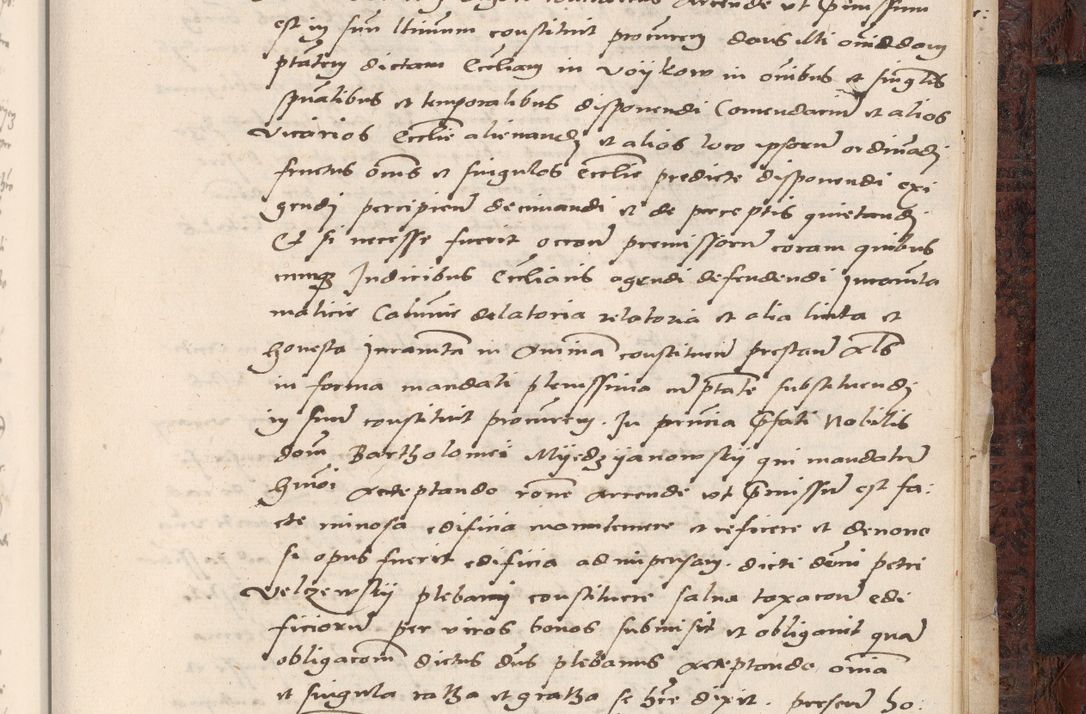 est in suu ltimum constituit procurem dans illi omnedam
ptatem dictam Eccliam in Voijkow in oibus et singlis
spualibus et temporalibus disponendi Comendariu et alios
Vicarios Ecclie alienandj et alios loco ipsoru ordinadj
fructus oms et singulos Ecclie predicte disponendi exi
gendj percipiend decimandi et de perceptis quietandj
Et si necesse fuerit occone premissoru coram quibus
cumqz Iudicibus Eccliaris agendi defendendi Iuramta
malicie Calumie delatoria relatoria et alia licita et
honesta Iuramta in Animam constituen prestan Als
in forma mandati plenissima cu ptate substituendj
in suu constituit procurem. In pntia Pfati Nobilis
dom Bartholomei Mijedzijanowskij qui mandatu
hmoi Acceptando rone Arende ut Pmissu est fa:
cte ruinosa edificia manutenere et reficere et denovo
si opus fuerit edificia ad impensam. dicti dni petri
Velzewskij plebani constituere salva taxacone edi
ficioru per viros bonos submisit et obligavit quam
obligacom dictus dns plebanus Acceptando omia
et singula ratha et gratha se hre dixit. presen ho: